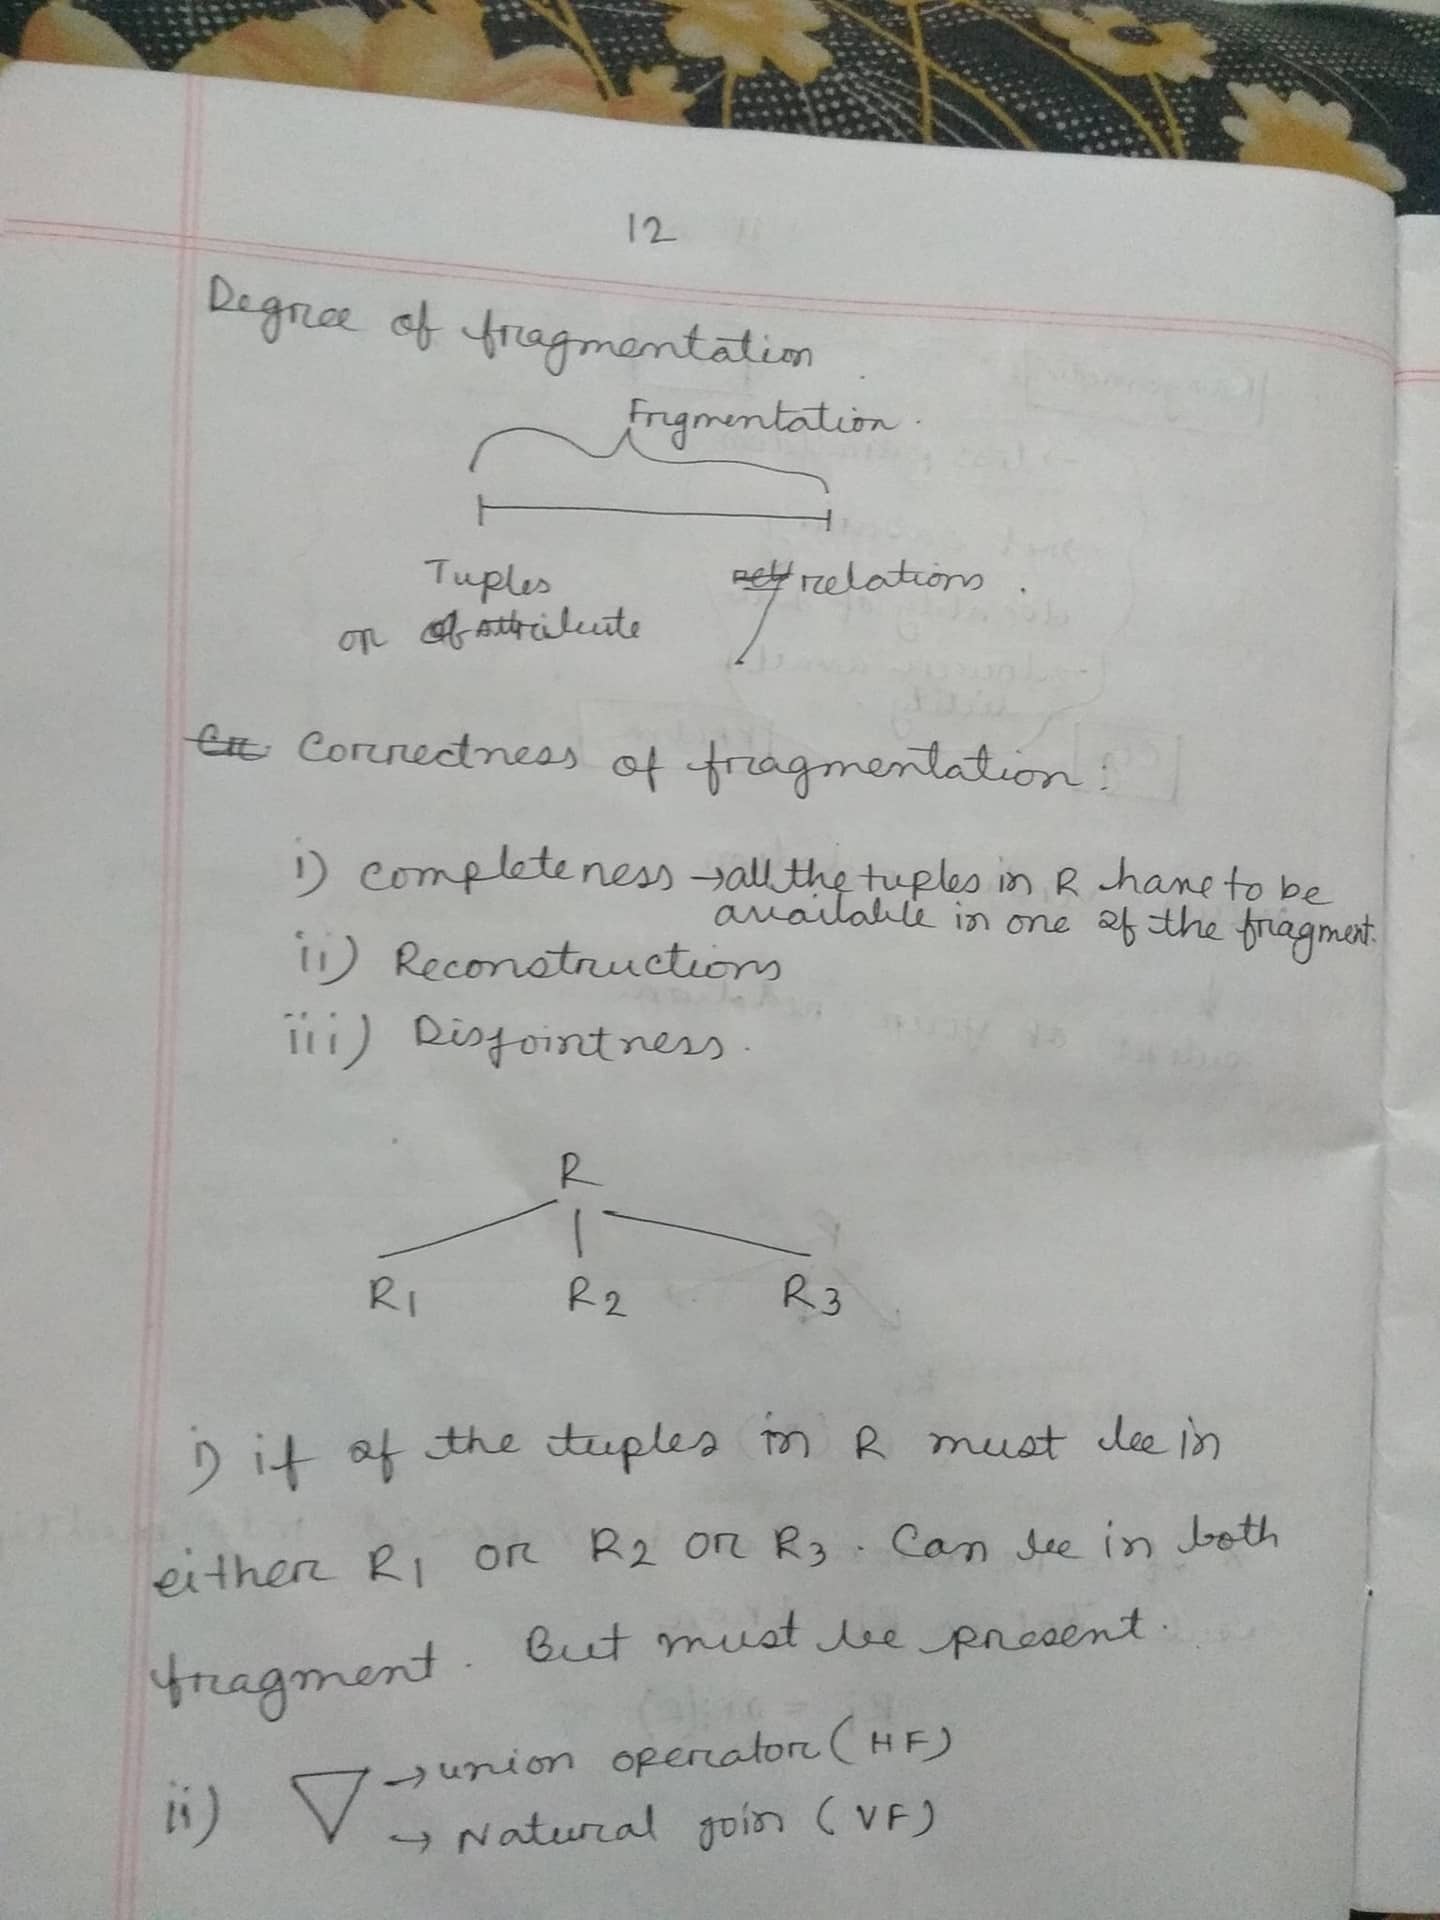 12
Degree of fragmentation
Frgmentation.
Tuples relations.
or attribute
Correctness of fragmentation:
i) completeness → all the tuples in R have to be
available in one of the fragment.
ii) Reconstructions
iii) Disjointness.
R
R1 R2 R3
i) if of the tuples in R must be in
either R1 or R2 or R3. Can be in both
fragment. But must be present.
ii) ▽ → union operator (HF)
→ Natural join (VF)